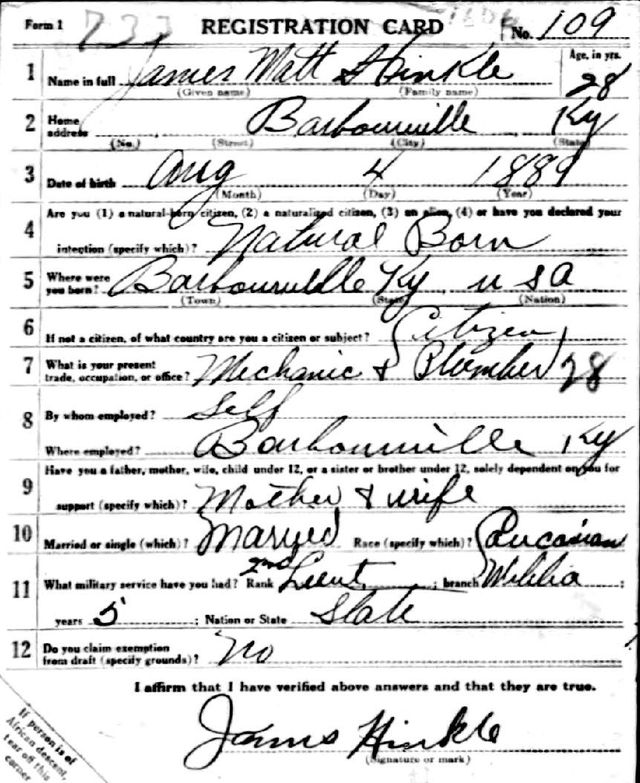 Form 1 733 REGISTRATION CARD No. 109
1 Name in full James Matt Hinkle Age, in yrs. 28
(Given name) (Family name)
2 Home address Barbourville Ky
(No.) (Street) (City) (State)
3 Date of birth Aug 4 1889
(Month) (Day) (Year)
Are you (1) a natural-born citizen, (2) a naturalized citizen, (3) an alien, (4) or have you declared your
4 intention (specify which)? Natural Born
5 Where were you born? Barbourville Ky, USA
(Town) (State) (Nation)
6 If not a citizen, of what country are you a citizen or subject? Citizen
7 What is your present trade, occupation, or office? Mechanic & Plumber 28
8 By whom employed? Self
Where employed? Barbourville Ky
Have you a father, mother, wife, child under 12, or a sister or brother under 12, solely dependent on you for
9 support (specify which)? Mother & wife
10 Married or single (which)? Married Race (specify which)? Caucasian
11 What military service have you had? Rank 2nd Lieut ; branch Militia ;
years 5 ; Nation or State State
12 Do you claim exemption from draft (specify grounds)? No
I affirm that I have verified above answers and that they are true.
James Hinkle
(Signature or mark)
If person is of
African descent,
tear off this
corner